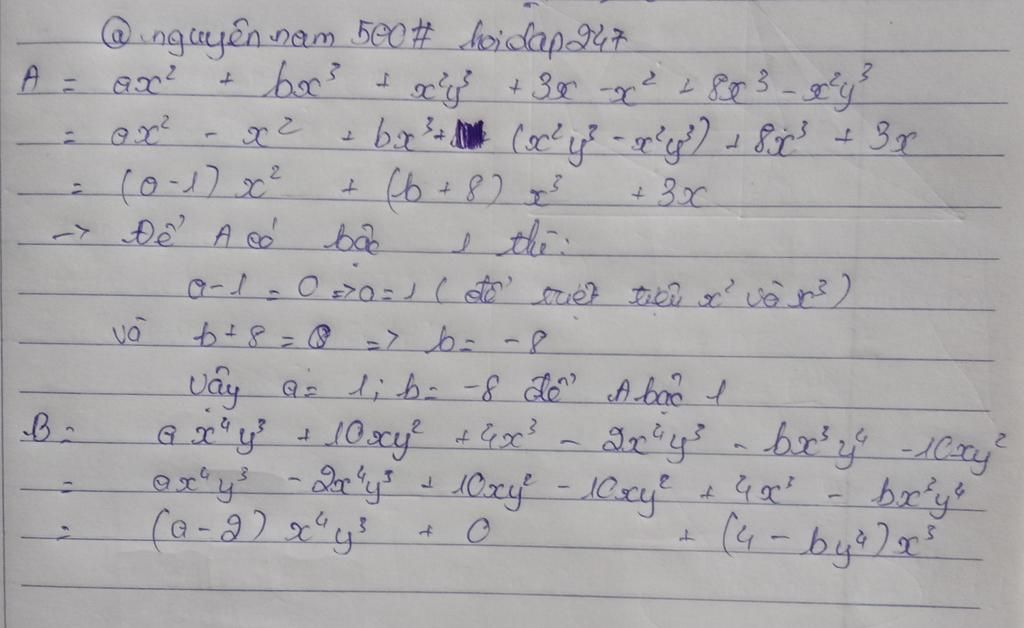 @nguyênnam 500# hoidap247
A = ax² + bx³ + x²y³ + 3x - x² + 8x³ - x²y³
= ax² - x² + bx³ + (x²y³ - x²y³) + 8x³ + 3x
= (a-1) x² + (b + 8) x³ + 3x
-> Để A có bậc 1 thì:
a-1 = 0 => a = 1 ( để triệt tiêu x² và x³ )
và b + 8 = 0 => b = -8
Vậy a = 1 ; b = -8 để A bậc 1
B = ax⁴y³ + 10xy² + 4x³ - 2x⁴y³ - bx³y⁴ - 10xy²
= ax⁴y³ - 2x⁴y³ + 10xy² - 10xy² + 4x³ - bx³y⁴
= (a-2) x⁴y³ + 0 + (4 - by⁴) x³